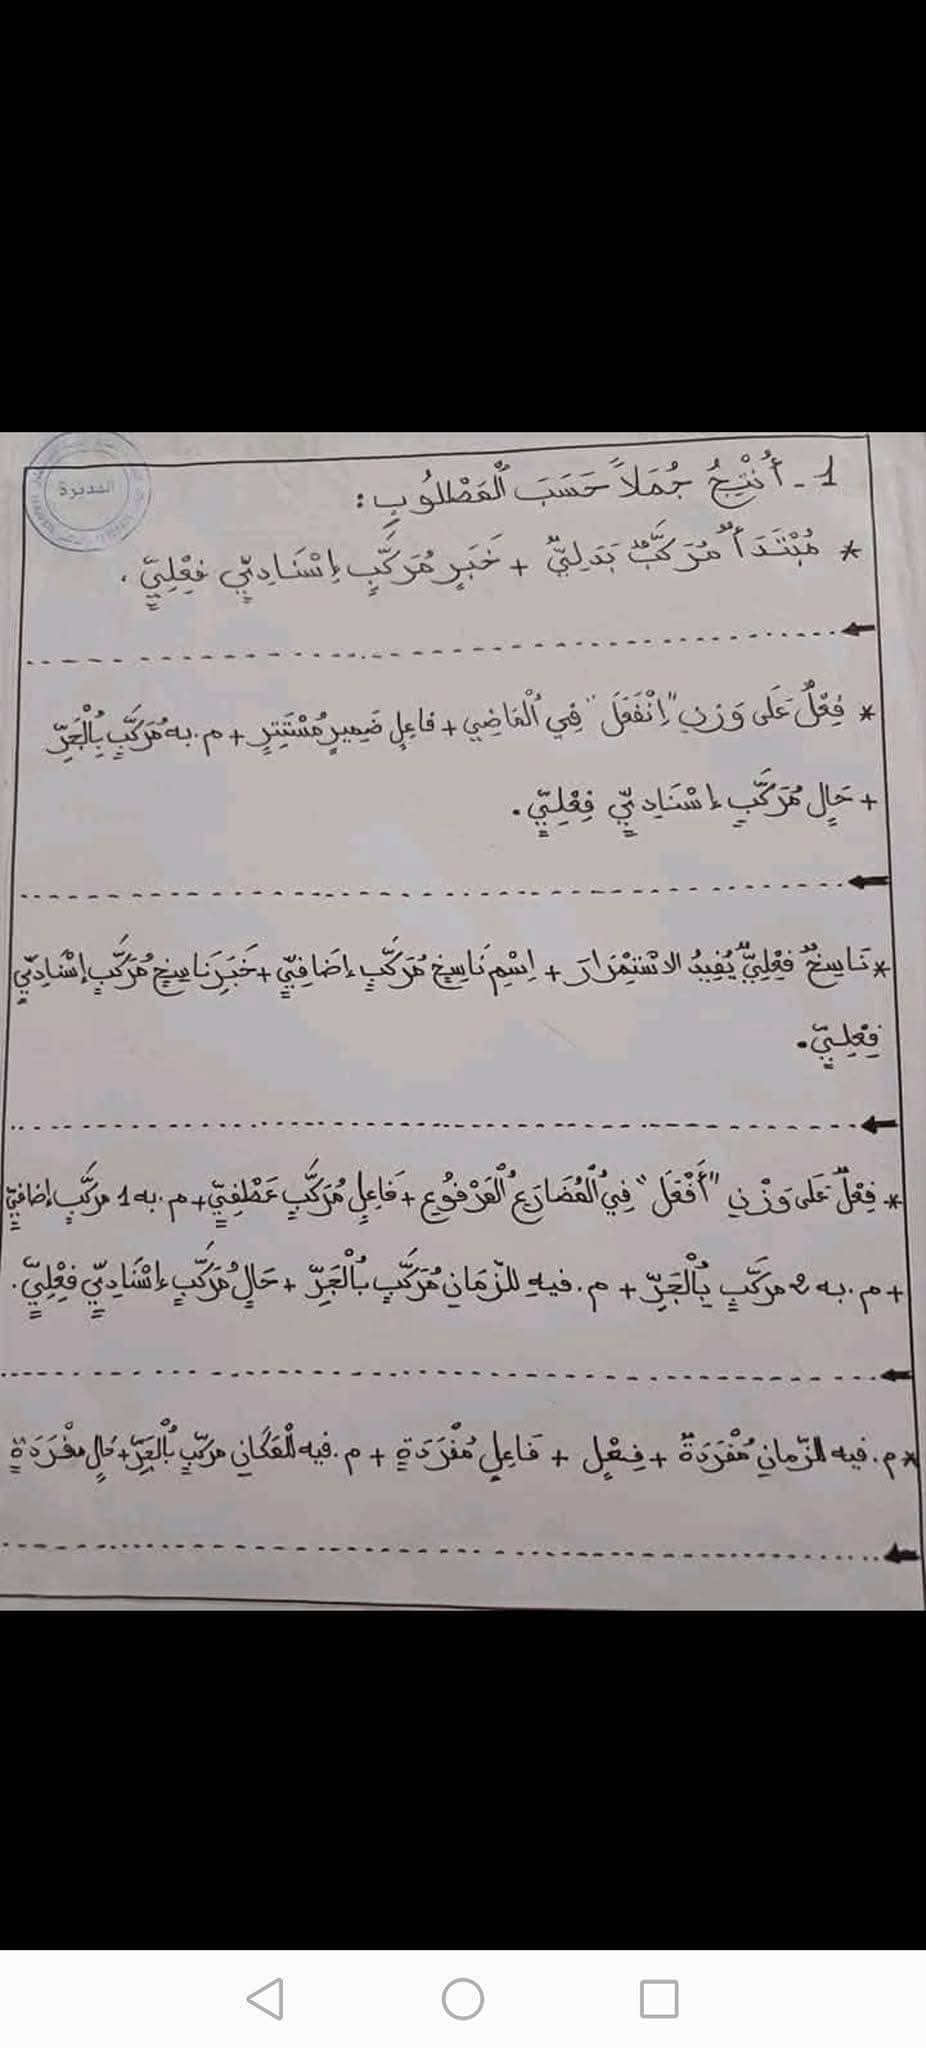 1 - أُنْتِجُ جُمَلاً حَسَبَ ٱلْمَطْلُوبِ :
* مُبْتَدَأٌ مُرَكَّبٌ بَدَلِيٌّ + خَبَرٍ مُرَكَّبٍ إِسْنَادِيٍّ فِعْلِيٍّ .
* فِعْلٌ عَلَى وَزنِ "اِنْفَعَلَ" فِي ٱلْمَاضِي + فاعِلٍ ضَمِيرٍ مُسْتَتِرٍ + م.به مُرَكَّبٍ بِٱلْجَرِّ
+ حَالٍ مُرَكَّبٍ إسْنَادِيٍّ فِعْلِيٍّ .
* نَاسِخٌ فِعْلِيٌّ يُفِيدُ الاسْتِمْرَارَ + اِسْمِ نَاسِخٍ مُرَكَّبٍ إضَافِيٍّ + خَبَرِ نَاسِخٍ مُرَكَّبٍ إسْنَادِيٍّ
فِعْلِيٍّ .
* فِعْلٌ عَلَى وَزْنِ "أَفْعَلَ" فِي ٱلْمُضَارِعِ ٱلْمَرْفُوعِ + فَاعِلٍ مُرَكَّبٍ عَطْفِيٍّ + م.به 1 مركَّبٍ إضافيٍّ
+ م.به 2 مركَّبٍ بِٱلْجَرِّ + م.فيهِ للزّمَانِ مُرَكَّبٍ بِٱلْجَرِّ + حَالٍ مُرَكَّبٍ إسْنَادِيٍّ فِعْلِيٍّ .
* م.فيه للزّمانِ مُفْرَدَةٌ + فِعْلٍ + فَاعِلٍ مُفْرَدَةٍ + م.فيه للْمَكَانِ مركّبٍ بِٱلْجَرِّ + حَالٍ مفْرَدَةٍ